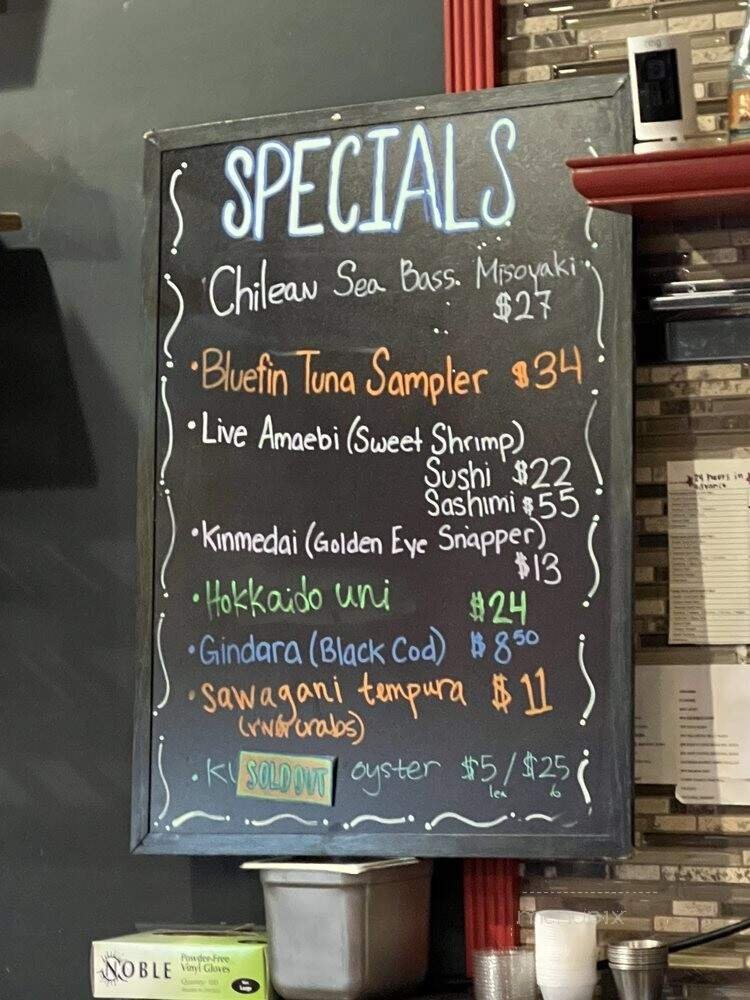 SPECIALS
Chilean Sea Bass. Misoyaki
$27
• Bluefin Tuna Sampler $34
• Live Amaebi (Sweet Shrimp)
Sushi $22
Sashimi $55
• Kinmedai (Golden Eye Snapper)
$13
• Hokkaido uni $24
• Gindara (Black Cod) $8 50
• Sawagani tempura $11
(river crabs)
• SOLD OUT oyster $5 / $25
1ea 6
24 hours in
advance
ring
NOBLE
Powder-Free
Vinyl Gloves